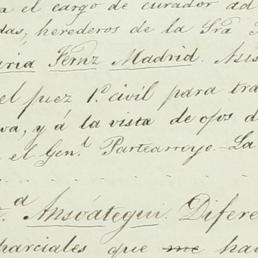 a el cargo de curador ad
das, herederos de la Sra
ria Fernz Madrid. Asis
el juez 1º civil para tra
va, y á la vista de ojos d
el Gen.l Partearroyo - La
a Ansoátegui. Difere
parciales que me ha